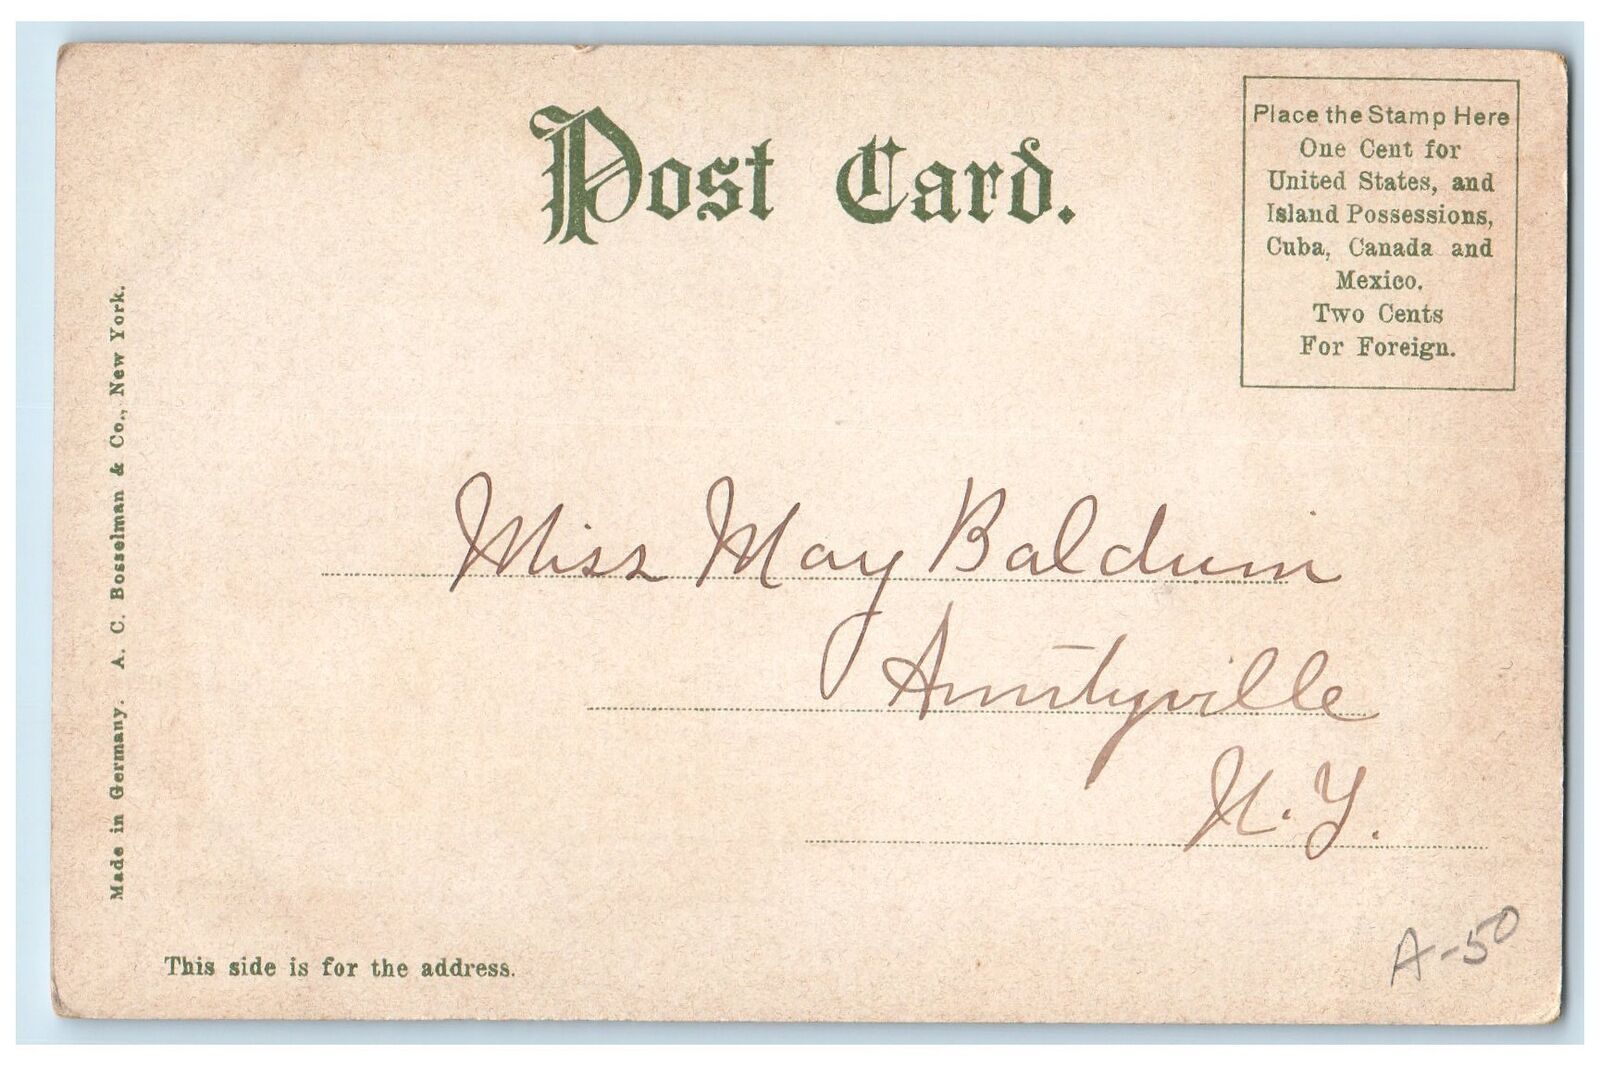 Post Card.
Place the Stamp Here
One Cent for
United States, and
Island Possessions,
Cuba, Canada and
Mexico.
Two Cents
For Foreign.
Made in Germany. A. C. Bosselman & Co., New York.
Miss May Baldwin
N. Y.
This side is for the address.
A-50